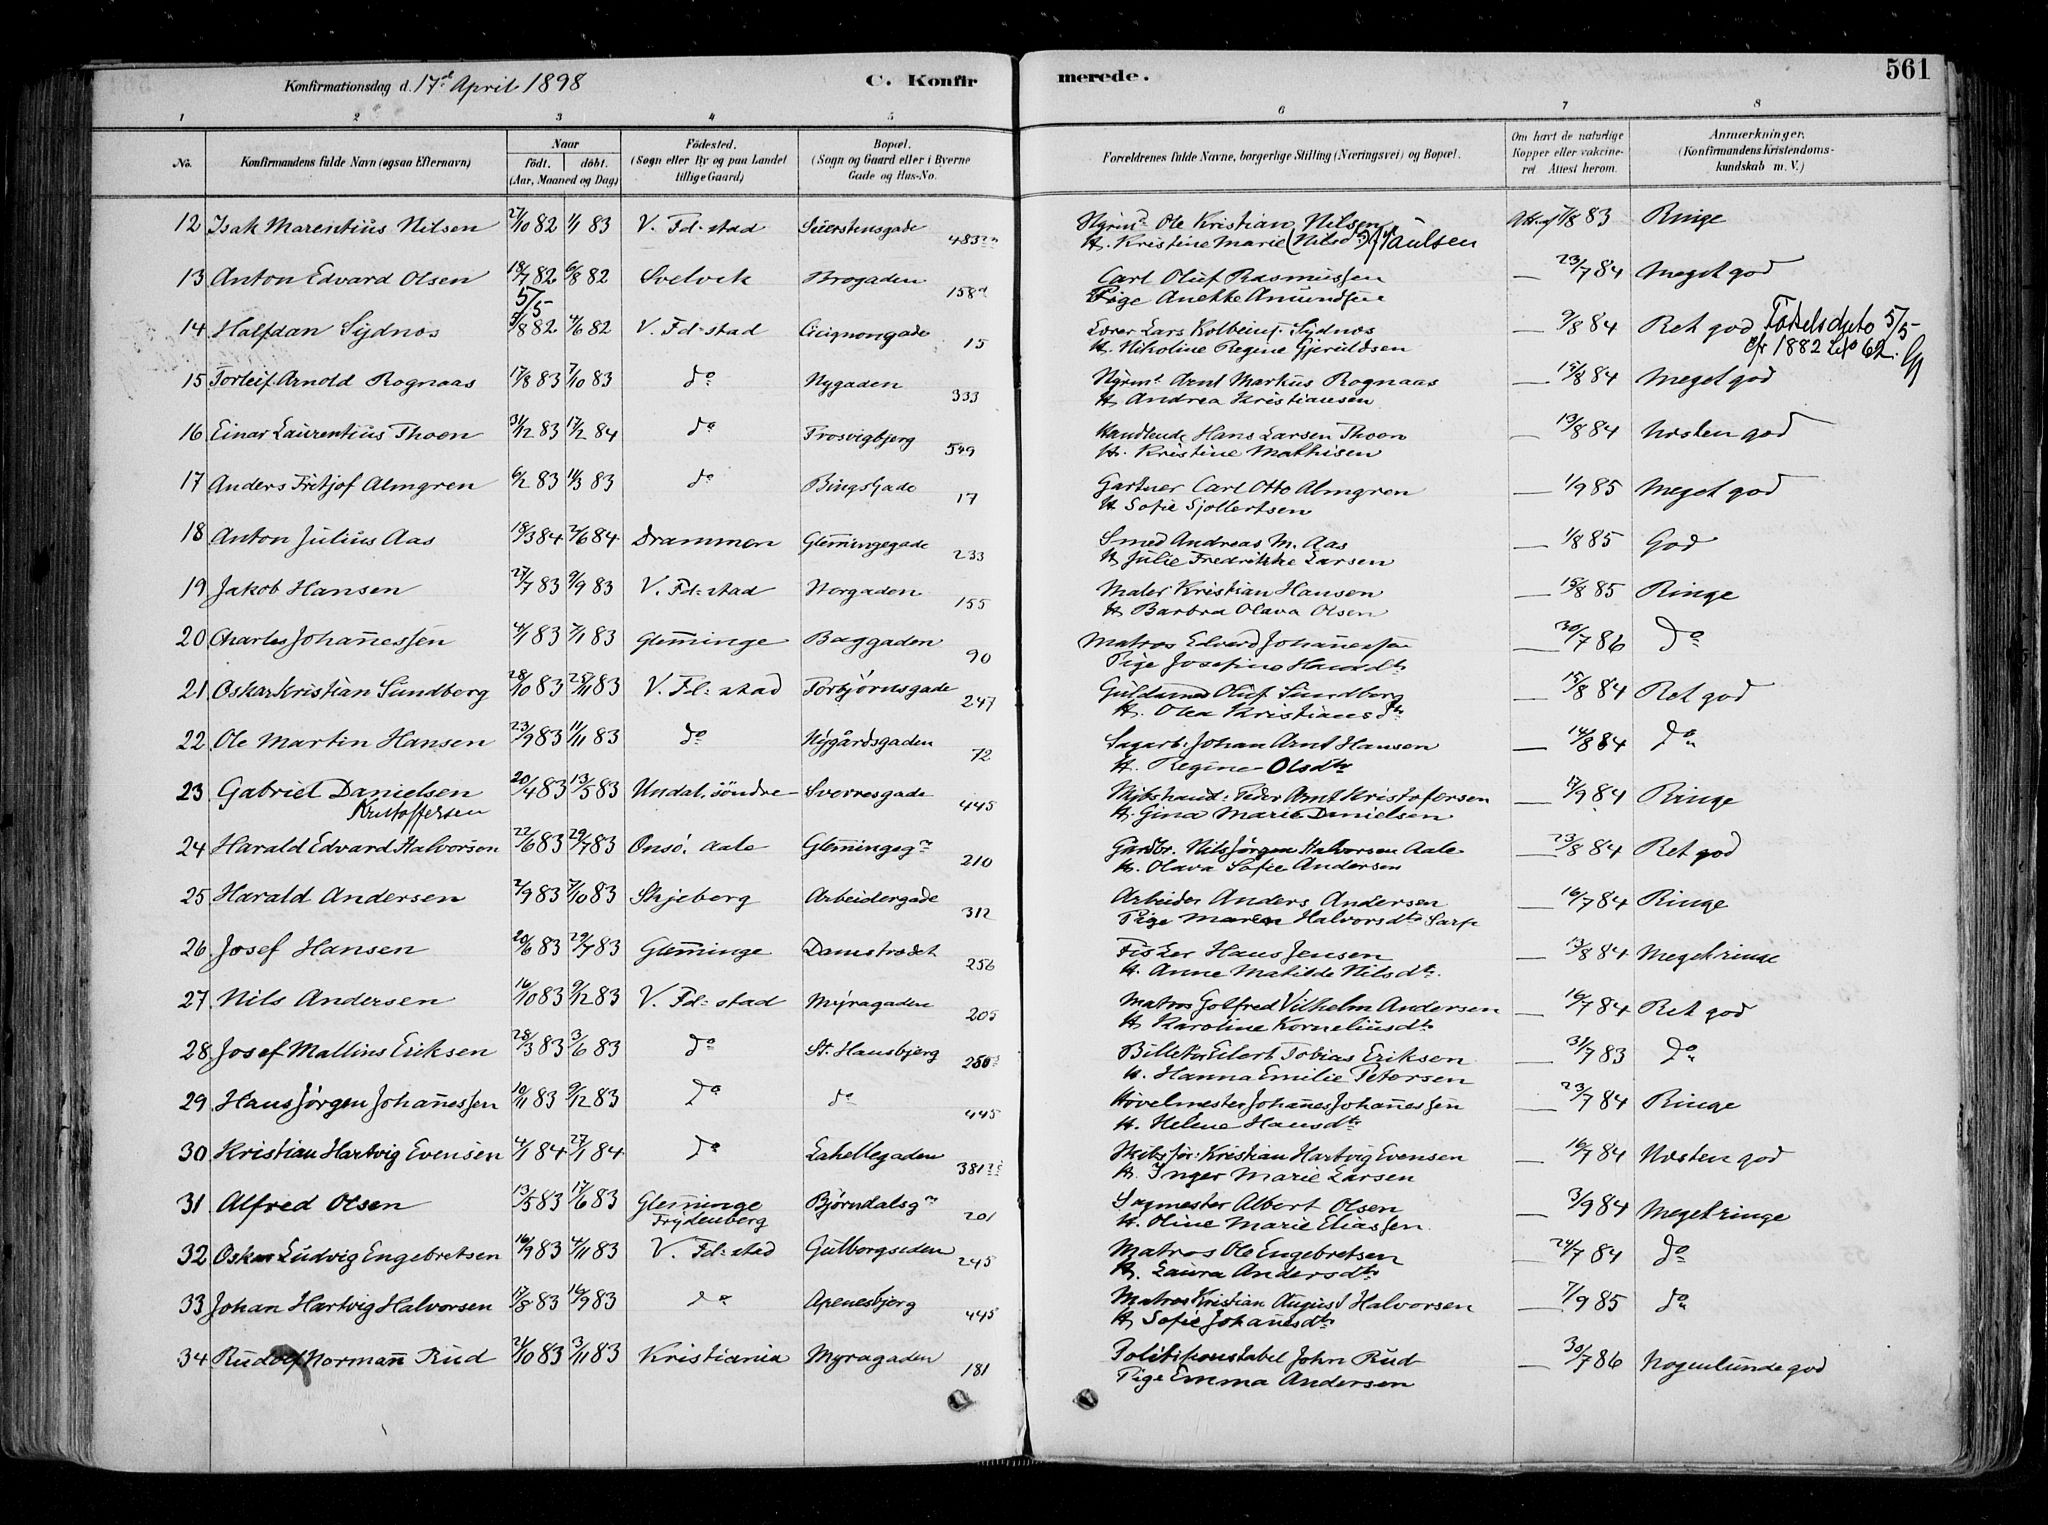 561
Konfirmationsdag d. 17de April 1898 C. Konfirmerede.
1 2 3 4 5 6 7 8
No. Konfirmandens fulde Navn (ogsaa Efternavn) Naar født. døbt. (Aar, Maaned og Dag) Fødested. (Sogn eller By og paa Landet tillige Gaard) Bopæl. (Sogn og Gaard eller i Byerne Gade og Hus-No. Forældrenes fulde Navne, borgerlige Stilling (Næringsvei) og Bopæl. Om havt de naturlige Kopper eller vakcineret. Attest herom. Anmærkninger. (Konfirmandens Kristendomskundskab m. V.)
12 Isak Marentius Nilsen 27/10 82 1/1 83 V. Fd:stad 483 Ole Kristian Nilsen Att. af 7/8 83 Ringe
H. Kristine Marie (Nilsdtr) Paulsen
13 Anton Edvard Olsen 18/7 82 6/8 82 Svelvik Brogaden 158 Carl Oluf Rasmussen — 23/7 84 Meget god
Pige Anette Amundsen
5/5
14 Halfdan Sydnos 5/8 82 4/6 82 V. Fd:stad Cicignongade 15 Lars Kolbeins. Sydnos — 9/8 84 Ret god Fødselsdato 5/5
H. Nikoline Regine Gjerildsen cfr 1882 No 62.
15 Torleif Arnold Rognaas 17/8 83 7/10 83 do Nygaden 333 Arnt Markus Rognaas — 13/8 84 Meget god
H. Andrea Kristiansen
16 Einar Laurentius Thoen 31/12 83 17/2 84 do Trosvigbjerg 599 Handlende Hans Larsen Thoen — 13/8 84 Næsten god
H. Kristine Mathisen
17 Anders Fritjof Almgren 6/2 83 11/3 83 do Bingsgade 17 Gartner Carl Otto Almgren — 1/9 85 Meget god
H Sofie Sjollertsen
18 Anton Julius Aas 18/3 84 2/6 84 Drammen Glemmingegade 233 Smed Andreas M. Aas — 1/8 85 God
H Julie Fredrikke Larsen
19 Jakob Hansen 27/7 83 9/9 83 V. Fd:stad Norgaden 155 Maler Kristian Hansen — 15/8 85 Ringe
H Barbra Olava Olsen
20 Charles Johannessen 4/1 83 7/1 83 Glemminge Baggaden 90 Matros Edvard Johannessen — 30/7 86 do
Pige Josefine Hansdtr
21 Oskar Kristian Sundberg 28/10 83 25/11 83 V. Fd:stad Torbjørnsgade 247 Guldsmed Oluf Sundberg — 15/8 84 Ret god
H. Olea Kristiansdtr
22 Ole Martin Hansen 23/9 83 11/11 83 do Nygårdsgaden 72 Sagarb: Johan Arnt Hansen — 14/8 84 do
H. Regine Olsdtr
23 Gabriel Danielsen 20/4 83 13/5 83 Undal, söndre Sverresgade 445 Peder Arnt Kristofersen — 17/9 84 Ringe
Kristoffersen H. Gina Marie Danielsen
24 Harald Edvard Halvorsen 22/6 83 29/7 83 Onsö: Aale Glemmingegn 210 Gardbr. Nils Jørgen Halvorsen Aale — 23/8 84 Ret god
H. Olava Sofie Andersen
25 Harald Andersen 2/9 83 7/10 83 Skjeberg Arbeidergade 312 Arbeider Anders Andersen — 16/7 84 Ringe
Pige Maren Halvorsdtr Sarp
26 Josef Hansen 20/6 83 29/7 83 Glemminge Damstrædet 256 Fisker Hans Jensen — 13/8 84 Meget ringe
H. Anne Matilde Nilsdtr.
27 Nils Andersen 16/10 83 9/12 83 V. Fd:stad Myragaden 205 Matros Golfred Vilhelm Andersen — 16/7 84 Ret god
H Karoline Korneliusdtr
28 Josef Mallius Eriksen 28/3 83 3/6 83 do St. Hansbjerg 280 Eilert Tobias Eriksen — 31/7 83 do
H. Hanna Emilie Petersen
29 Hans Jørgen Johannessen 10/11 83 9/12 83 do do 445 Høvelmester Johannes Johannessen — 23/7 84 Ringe
H. Helene Hansdtr
30 Kristian Hartvig Evensen 4/1 84 27/1 84 do Lahellegaden 381 Skibsfør: Kristian Hartvig Evensen — 16/7 84 Næsten god
H. Inger Marie Larsen
31 Alfred Olsen 13/5 83 17/6 83 Glemminge Bjørndalsgn 201 Sagmester Albert Olsen — 3/9 84 Meget ringe
Frydenberg H. Oline Marie Eliassen
32 Oskar Ludvig Engebretsen 16/9 83 4/11 83 V. Fd:stad Gulborgsiden 245 Matros Ole Engebretsen — 24/7 84 do
H. Laura Andersdtr
33 Johan Hartvig Halvorsen 17/8 83 16/9 83 do Apenesbjerg 445 Matros Kristian August Halvorsen — 7/9 85 do
H Sofie Johannesdtr
34 Rudolf Normann Rud 21/10 83 3/11 83 Kristiania Myragaden 181 Politikonstabel John Rud — 30/7 86 Nogenlunde god
Pige Emma Andersen